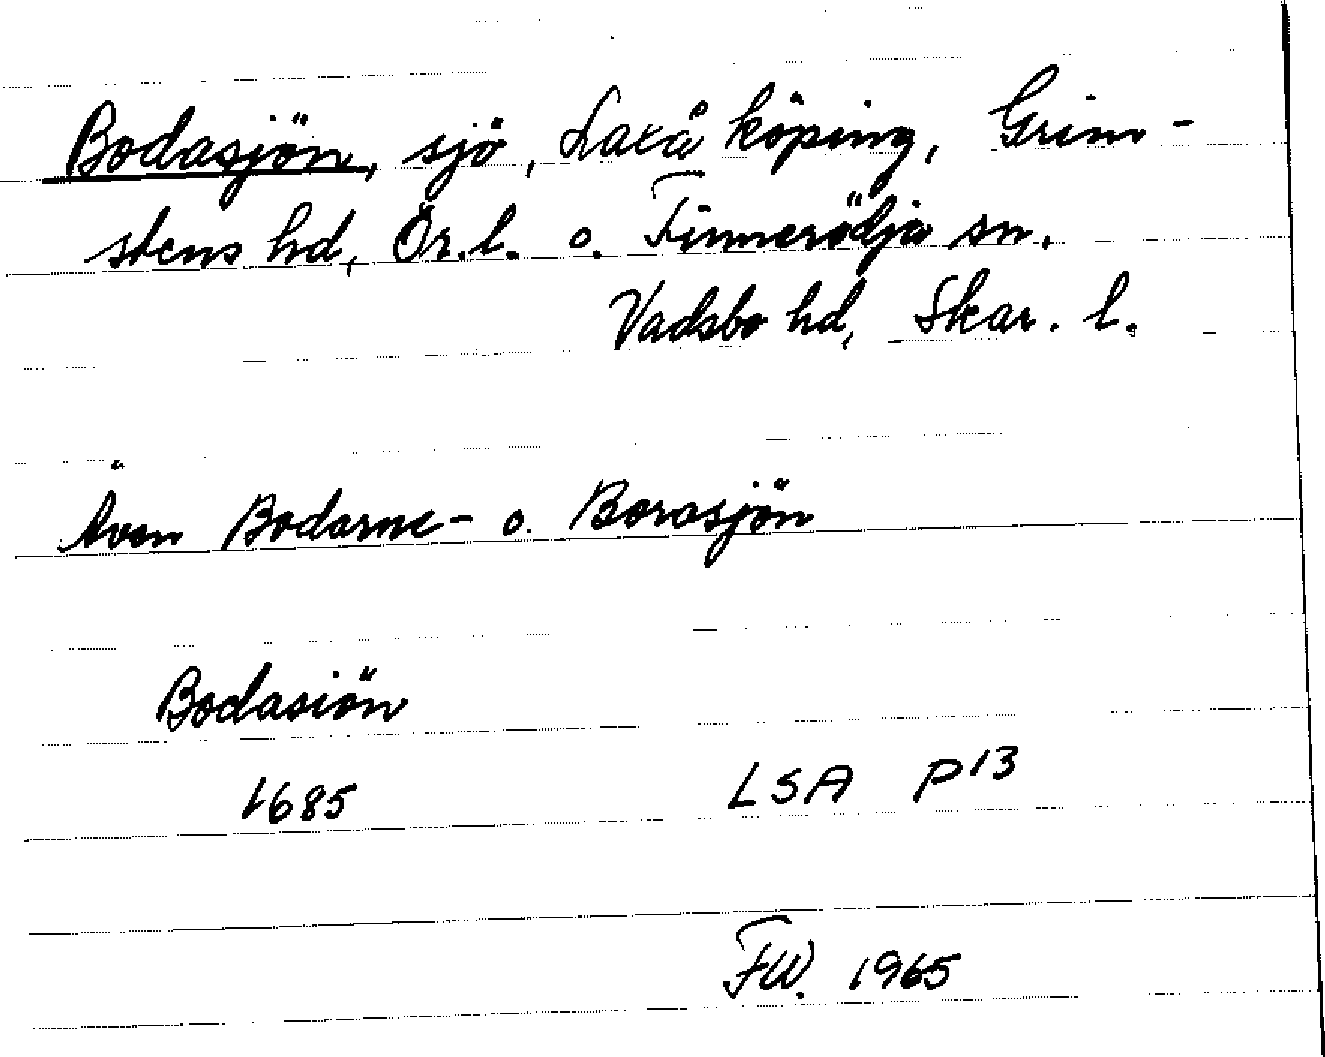 Bodasjön, sjö, Laxå köping, Grim-
stens hd, Ör.l. o. Finnerödja sn.
Vadsbo hd, Skar. l.
Även Bodarne- o. Borasjön
Bodasiön
1685 LSA P13
FW. 1965